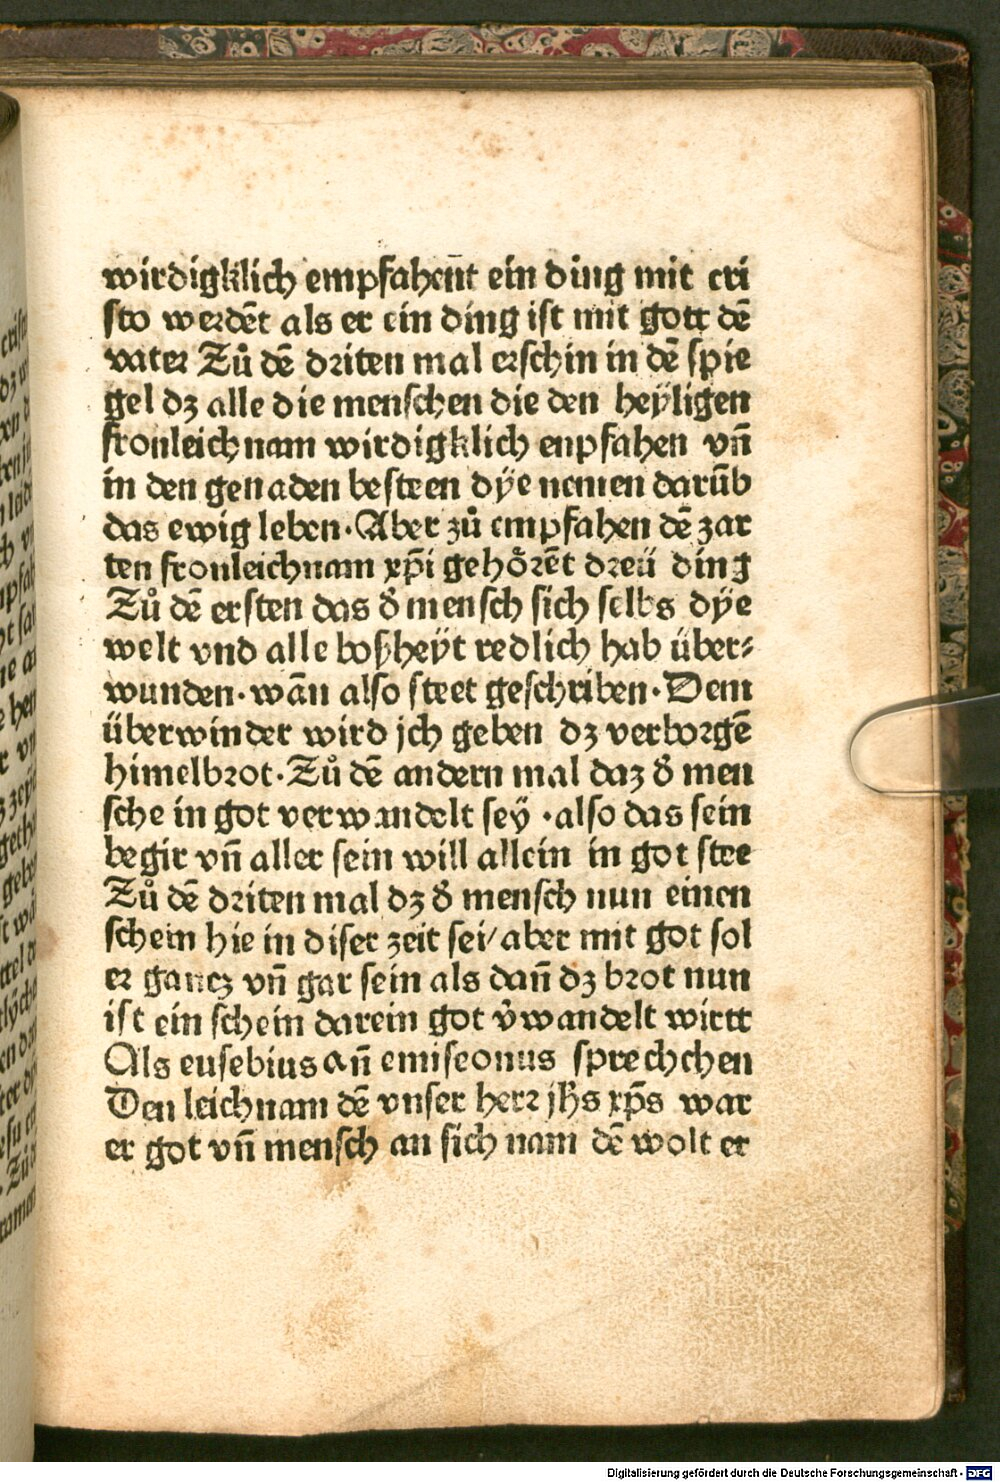 wirdigklich empfahent̄ ein ding mit cri
sto werdēt als er ein ding ist mit gott dē
vater Zů dē driten mal erschin in dē spie
gel dz alle die menschen die den heÿligen
fronleichnam wirdigklich enpfahen vn̄
in den genaden besteen dÿe nemen darūb
das ewig leben · Aber zů empfahen dē zar
ten fronleichnam xp̄i gehȫrēt dreü ding
Zů dē ersten das d̄ mensch sich selbs dÿe
welt vnd alle boßheÿt redlich hab über⸗
wunden · wān also steet geschriben · Dem
überwinder wird jch geben dz verborgē
himelbrot · Zů dē andern mal daz d̄ men
sche in got verwandelt seÿ · also das sein
begir vn̄ aller sein will allein in got stee
Zů dē driten mal dz d̄ mensch nun einen
schein hie in diser zeit sei/ aber mit got sol
er gancz vn̄ gar sein als dan̄ dz brot nun
ist ein schein darein got v̄wandelt wirtt
Als eusebius an̄ emiseonus sprechchen
Den leichnam dē vnser herr jhs xp̄s war
er got vn̄ mensch an sich nam dē wolt er
Digitalisierung gefördert durch die Deutsche Forschungsgemeinschaft - DFG